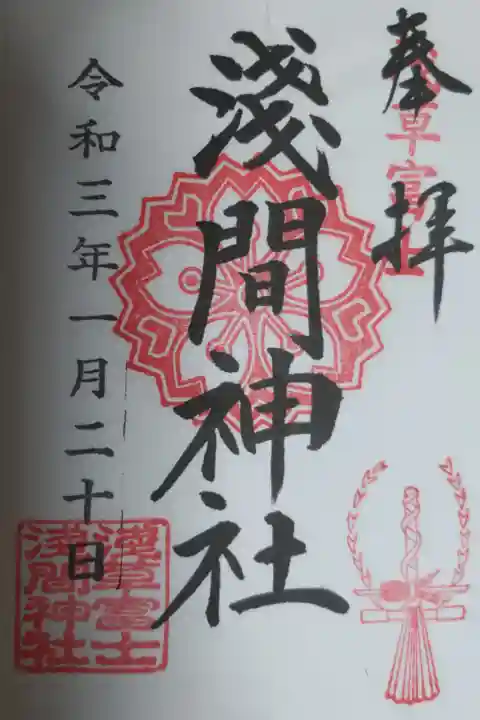 奉拝
浅草富士
淺間神社
令和三年一月二十日
浅草富士
浅間神社